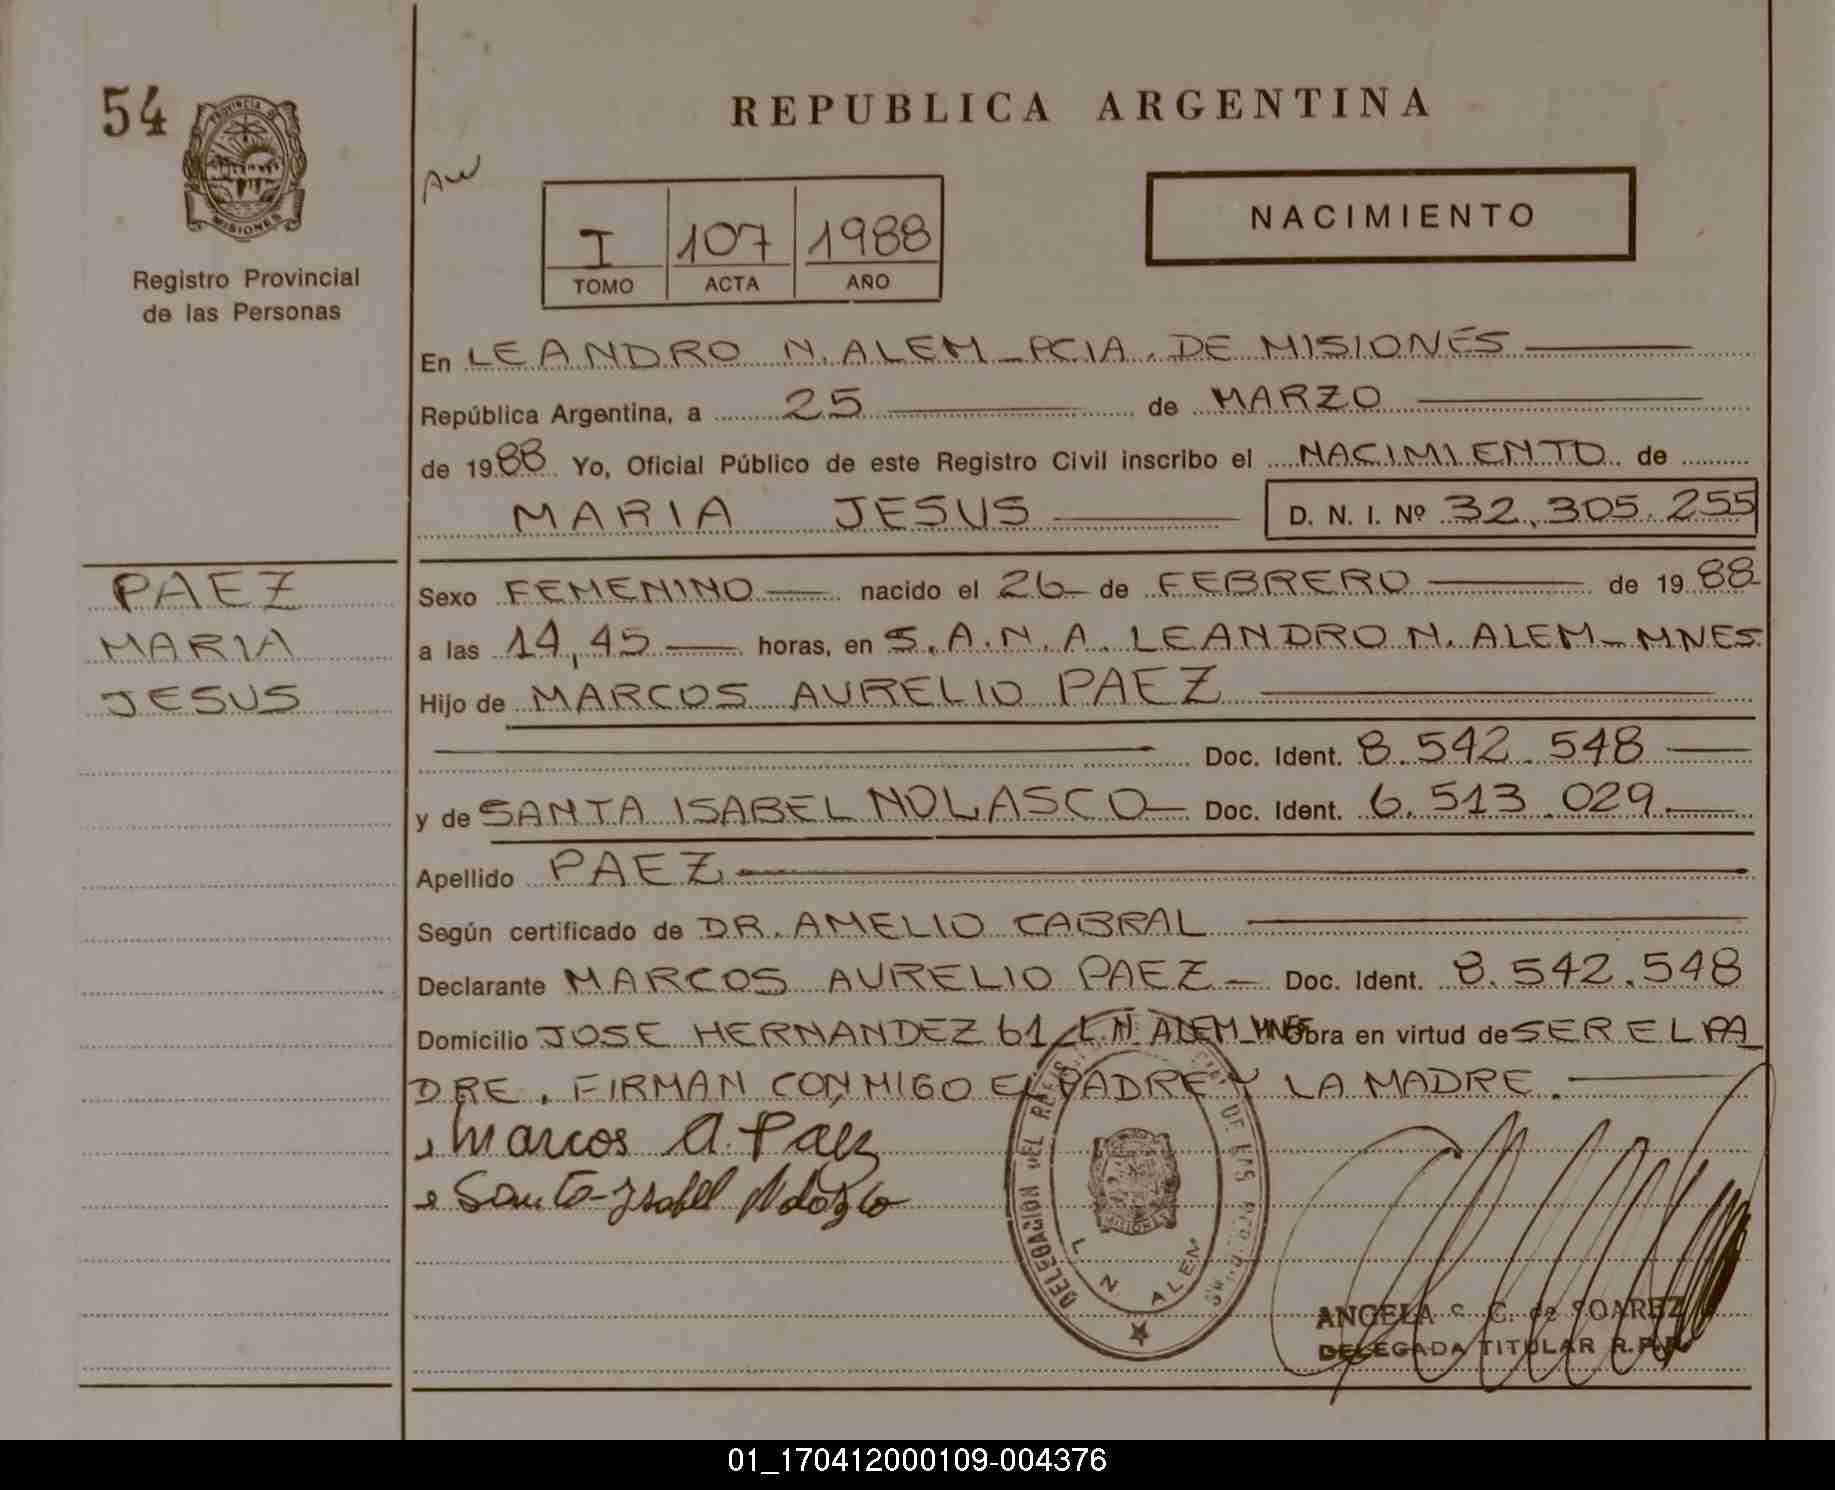 54
PROVINCIA DE
MISIONES
Registro Provincial
de las Personas
REPUBLICA ARGENTINA
I 107 1988
TOMO ACTA AÑO
NACIMIENTO
En LEANDRO N. ALEM - PCIA. DE MISIONES
República Argentina, a 25 de MARZO
de 1988 Yo, Oficial Público de este Registro Civil inscribo el NACIMIENTO de
MARIA JESUS D. N. I. Nº 32.305.255
PAEZ
MARIA
JESUS
Sexo FEMENINO nacido el 26 de FEBRERO de 1988
a las 14,45 horas, en S.A.N.A. LEANDRO N. ALEM - MNES.
Hijo de MARCOS AURELIO PAEZ
Doc. Ident. 8.542.548
y de SANTA ISABEL NOLASCO Doc. Ident. 6.513.029.
Apellido PAEZ
Según certificado de DR. AMELIO CABRAL
Declarante MARCOS AURELIO PAEZ - Doc. Ident. 8.542.548
Domicilio JOSE HERNANDEZ 61 L.N. ALEM MNES Obra en virtud de SER EL PA
DRE. FIRMAN CONMIGO EL PADRE Y LA MADRE.
Marcos A. Paez
Santa Isabel Nolasco
DELEGACION DEL REGISTRO CIVIL DE LAS PERSONAS
L. N. ALEM
MISIONES
ANGELA S. C. de SOAREZ
DELEGADA TITULAR R.P.P.
01_170412000109-004376